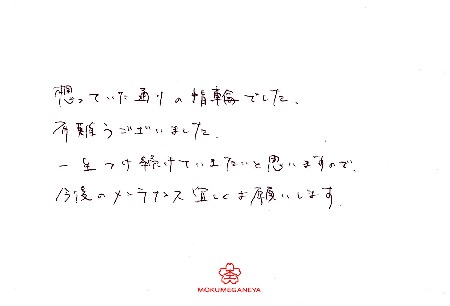 想っていた通りの指輪でした。
有難うございました。
一生つけ続けていきたいと思いますので、
今後のメンテナンス宜しくお願いします。
MOKUMEGANEYA